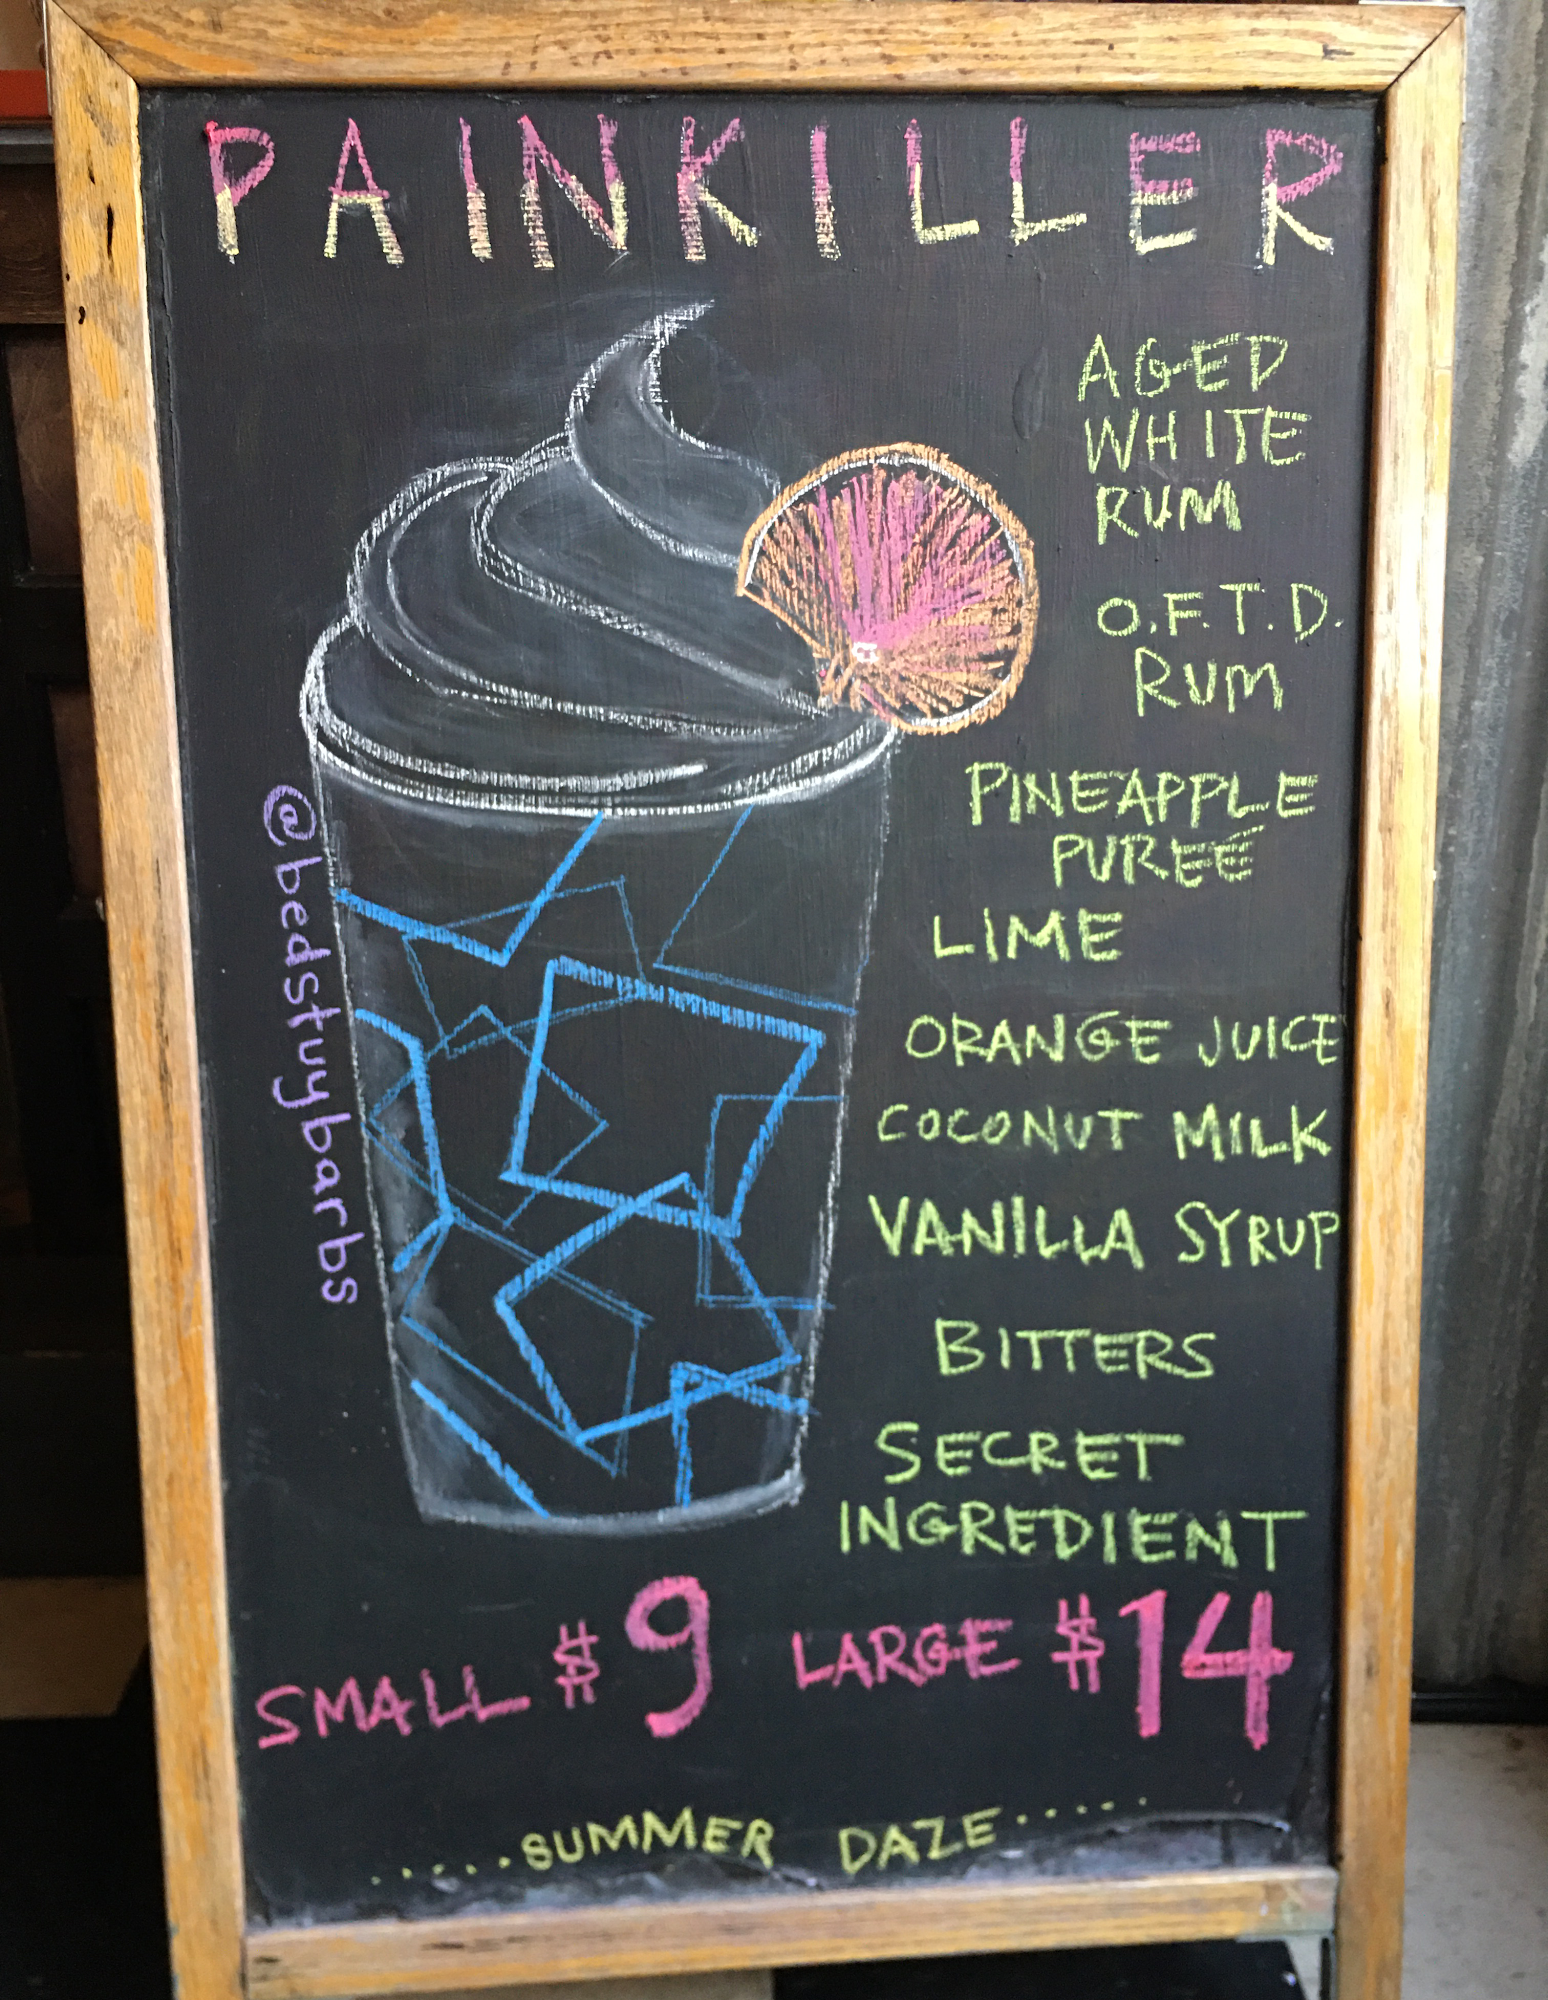 PAINKILLER
AGED
WHITE
RUM
O.F.T.D.
RUM
PINEAPPLE
PUREÉ
LIME
ORANGE JUICE
COCONUT MILK
VANILLA SYRUP
BITTERS
SECRET
INGREDIENT
@bedstuybarbs
SMALL $9 LARGE $14
.....SUMMER DAZE.....